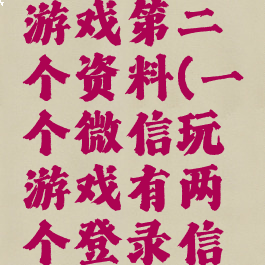 游戏第二
个资料(一
个微信玩
游戏有两
个登录信